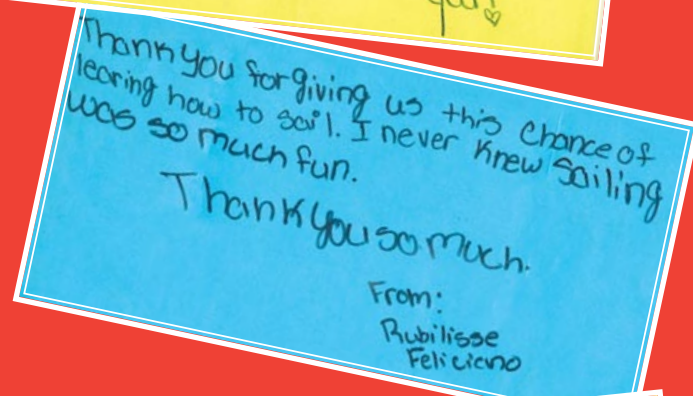 Thank you for giving us this chance of
learing how to sail. I never knew sailing
was so much fun.
Thank you so much.
From:
Rubilisse
Feliciano